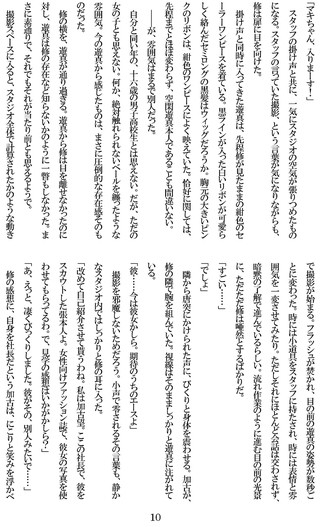 「マキちゃん、入りまーす！」
　スタッフの掛け声と共に、一気にスタジオの空気が張りつめたもの
になる。スタッフの言っていた撮影、という言葉が気になりながらも、
修は扉に目を向けた。
　掛け声と同時に入ってきた遊真は、先程修が見たままの紺色のセ
ーラーワンピースを着ている。黒ラインが入った白いリボンが可愛ら
しく絡んだセミロングの黒髪はウィッグだろうか。胸元の大きいピン
クのリボンは、紺色のワンピースによく映えていた。恰好に関しては、
先程までとほぼ変わらず、空閑遊真本人であることも間違いない。
　――が、雰囲気はまるで別人だった。
　自分と同い年の、十六歳の男子高校生とは思えない。だが、ただの
女の子とも思えない何か。絶対触れられないベールを纏ったような
雰囲気。今の遊真から感じたものは、まさに圧倒的な存在感そのも
のだった。
　修の横を、遊真が通り過ぎる。遊真から修は目を離せなかったのに
対し、遊真は修の存在など知らないかのように一瞥もしなかった。ま
さに素通りで、それでもそれが当たり前とも思えるようで。
　撮影スペースに入ると、スタジオ全体で計算されたかのような動き
で撮影が始まる。フラッシュが焚かれ、目の前の遊真の姿勢が数秒ご
とに変わった。時には小道具をスタッフに持たされ、時には表情と雰
囲気を一変させてみたり。ただしそれにほとんど会話は交わされず、
暗黙の了解で進んでいるらしい。流れ作業のように進む目の前の光景
に、ただただ修は唖然とするばかりだ。
「すごい……」
「でしょ」
　隣から唐突にかけられた声に、びくりと身体を震わせる。加古が、
修の隣で腕を組んでいた。視線はそのまましっかりと遊真に注がれて
いる。
「彼……今は彼女かしら。期待のうちのエースよ」
　撮影を邪魔しないためだろう。小声で零されるその言葉も、静か
なスタジオ内ではしっかりと修の耳に入った。
「改めて自己紹介させて貰うわね。私は加古望。ここの社長で、彼を
スカウトした張本人よ。女性向けファッション誌で、彼女の写真を使
わせてもらってるわ。で、見学の感想はいかがかしら？」
「あ、えっと、凄くびっくりしました。彼がその、別人みたいで……」
　修の感想に、自身を社長だという加古は、にこりと笑みを浮かべ
10